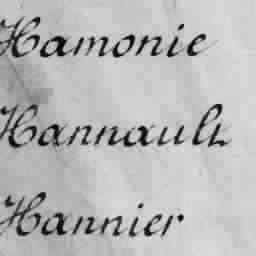 Hamonie
Hannault
Hannier